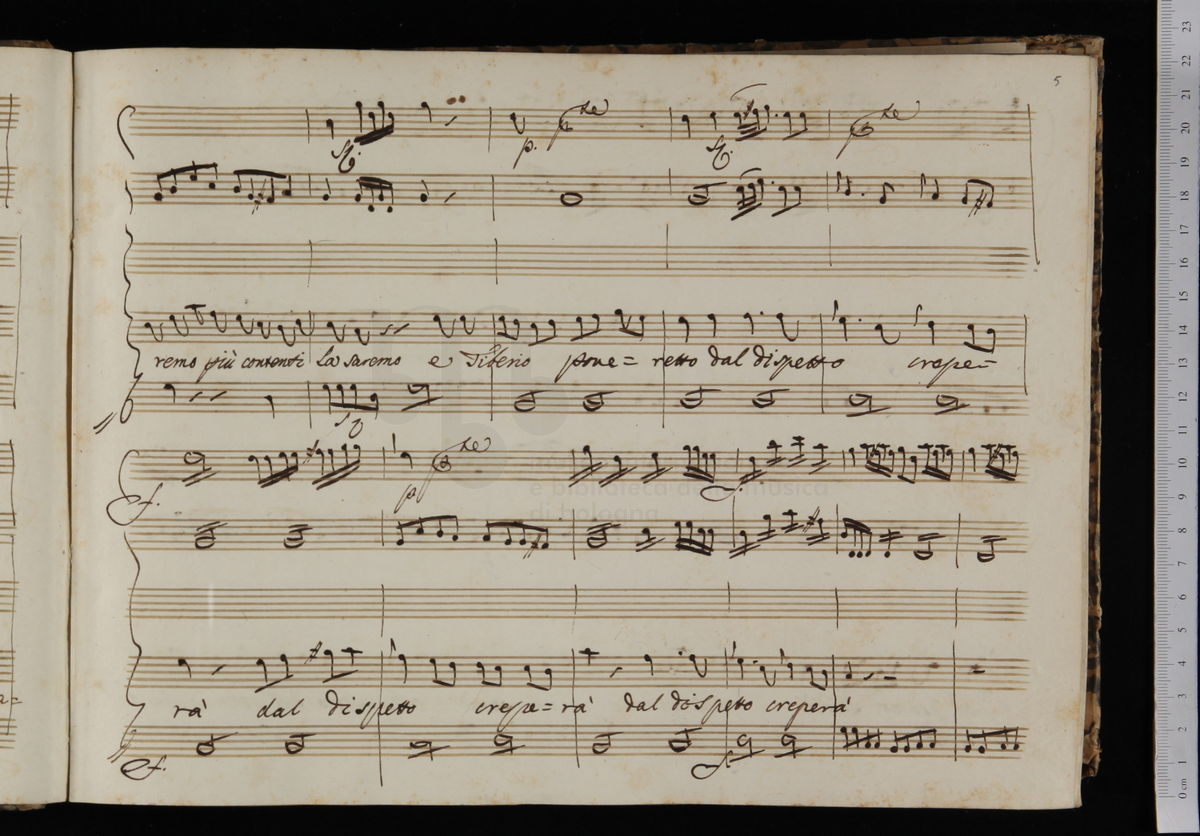 5
F. p. F.
remo più contenti lo saremo e Tiberio pove= retto dal dispetto crepe=
f. p. f.
e biblioteca della musica
di bologna
rà dal dispetto crepe= rà dal dispetto creperà
f. f.
23
22
21
20
19
18
17
16
15
14
13
12
11
10
9
8
7
6
5
4
3
2
1
0 cm